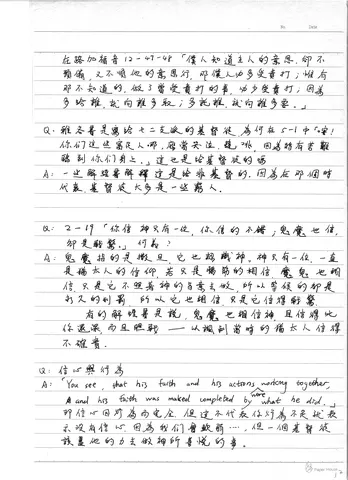 在路加福音12-47-48「僕人知道主人的意思,卻不
預備,又不順他的意思行,那僕人必多受責打;惟有
那不知道的,做了當受責打的事,必少受責打;因為
多給誰,就向誰多取;多託誰,就向誰多要。」
Q: 雅各書是寫給十二支派的基督徒,為何在5-1中「
你們這些富足人哪,應當哭泣、號咷,因為將有苦難
臨到你們身上。」這也是給基督徒的嗎
A: 一些解經書解釋這是給非基督的,因為在那個時
代裏,基督徒大多是一些窮人。
Q: 2-19「你信神只有一位,你信的不錯;鬼魔也信,
卻是戰驚。」何義?
A: 鬼魔指的是撒旦,它也接觸神。神只有一位,一直
是猶太人的信仰,若只是嘴唇的相信,魔鬼也相
信,只是它不照著神的旨意去做,所以等候的卻是
永久的刑罰,所以它也相信,只是它信得戰驚。
有的解經書是說,鬼魔也相信神,且信得比
你還深而且戰驚 — 以諷刺當時的猶太人信得
不確實。
Q: 信心與行為
A: "You see, that his faith and his actions were working together,
and his faith was maked completed by what he did."
即信心因行為而完全,但這不代表你行為不足就表
示沒有信心,因為我們會軟弱……,但一個基督徒
該盡他的力去做神所喜悅的事。